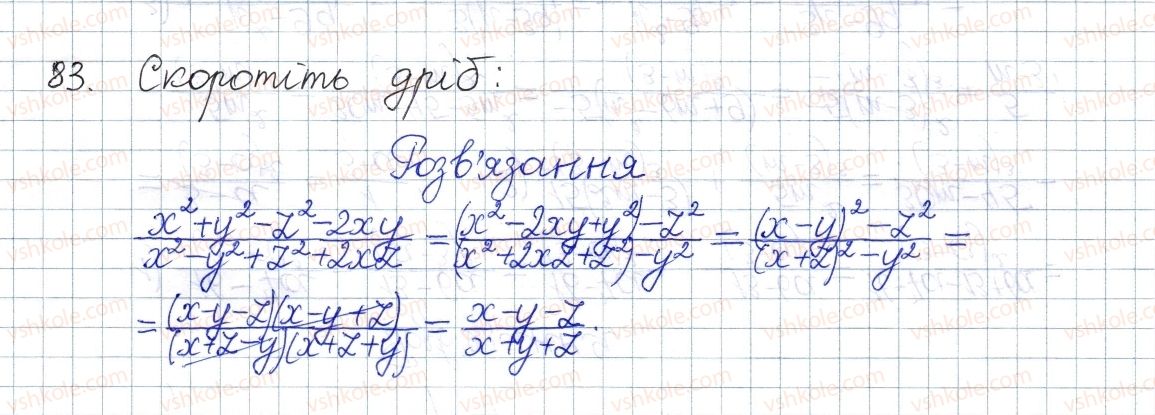 83. Скоротіть дріб:
Розв'язання
x²+y²-z²-2xy / x²-y²+z²+2xz = (x²-2xy+y²)-z² / (x²+2xz+z²)-y² = (x-y)²-z² / (x+z)²-y² =
= (x-y-z)(x-y+z) / (x+z-y)(x+z+y) = x-y-z / x+y+z.